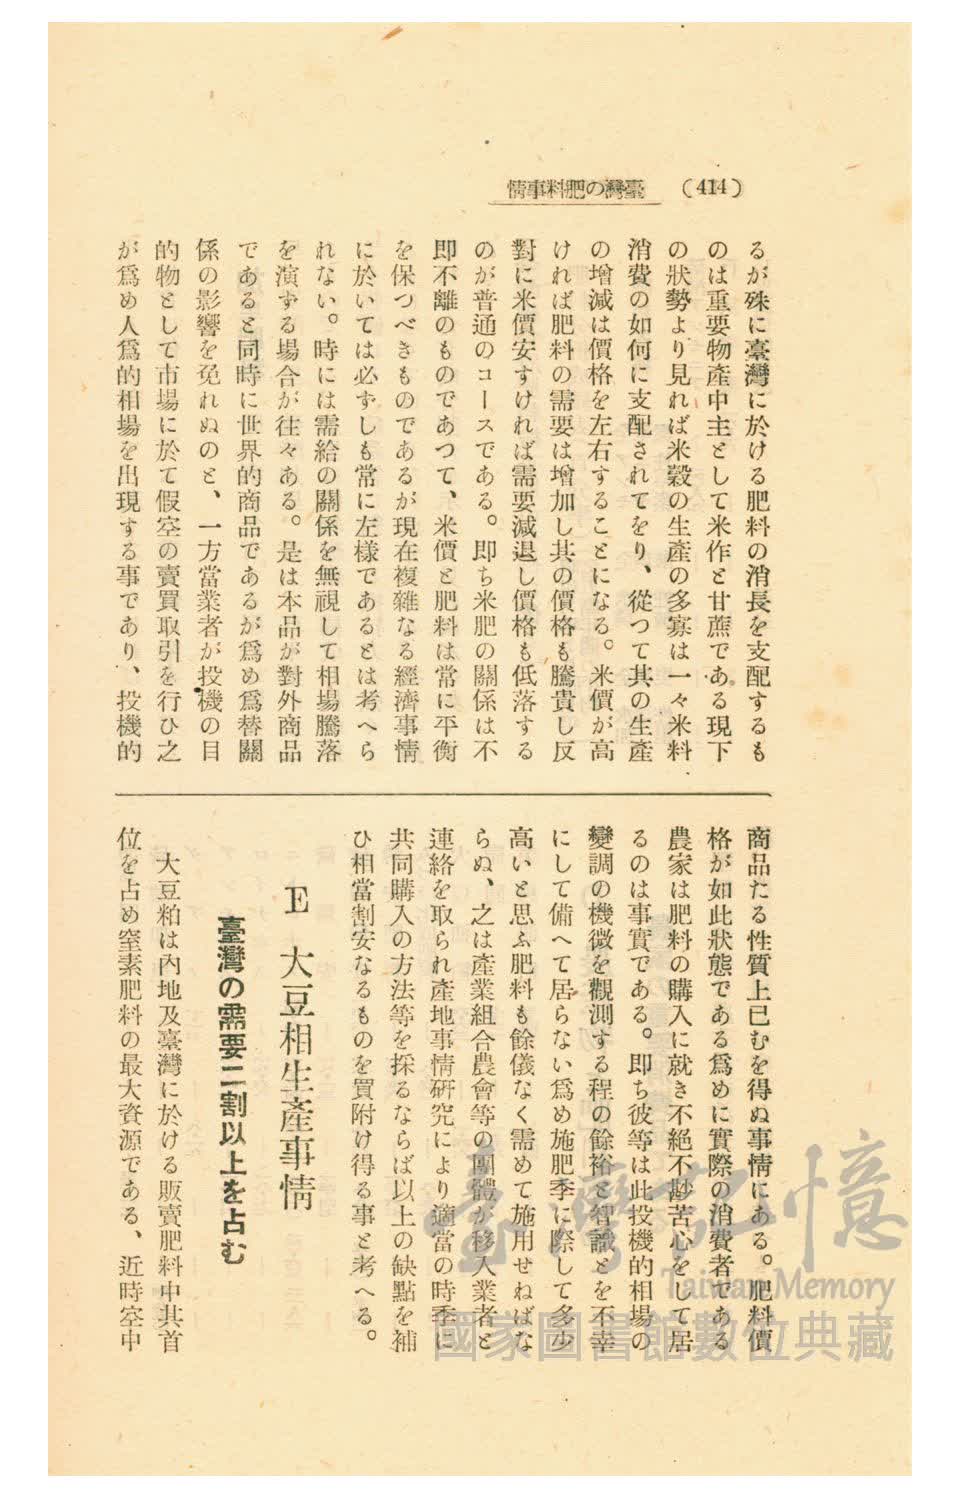 臺灣の肥料事情 (414)
るが殊に臺灣に於ける肥料の消長を支配するも
のは重要物產中主として米作と甘蔗である現下
の狀勢より見れば米穀の生產の多寡は一々米料
消費の如何に支配されてをり、從つて其の生產
の增減は價格を左右することになる。米價が高
ければ肥料の需要は增加し其の價格も騰貴し反
對に米價安すければ需要減退し價格も低落する
のが普通のコースである。即ち米肥の關係は不
即不離のものであつて、米價と肥料は常に平衡
を保つべきものであるが現在複雜なる經濟事情
に於いては必ずしも常に左樣であるとは考へら
れない。時には需給の關係を無視して相場騰落
を演ずる場合が往々ある。是は本品が對外商品
であると同時に世界的商品であるが爲め爲替關
係の影響を免れぬのと、一方當業者が投機の目
的物として市場に於て假空の賣買取引を行ひ之
が爲め人爲的相場を出現する事であり、投機的
商品たる性質上已むを得ぬ事情にある。肥料價
格が如此狀態である爲めに實際の消費者である
農家は肥料の購入に就き不絕不尠苦心をして居
るのは事實である。即ち彼等は此投機的相場の
變調の機微を觀測する程の餘裕と智識とを不幸
にして備へて居らない爲め施肥季に際して多少
高いと思ふ肥料も餘儀なく需めて施用せねばな
らぬ、之は產業組合農會等の團體が移入業者と
連絡を取られ產地事情硏究により適當の時季に
共同購入の方法等を採るならば以上の缺點を補
ひ相當割安なるものを買附け得る事と考へる。
E 大豆相生產事情
臺灣の需要二割以上を占む
大豆粕は內地及臺灣に於ける販賣肥料中其首
位を占め窒素肥料の最大資源である、近時空中
臺灣記憶
Taiwan Memory
國家圖書館數位典藏